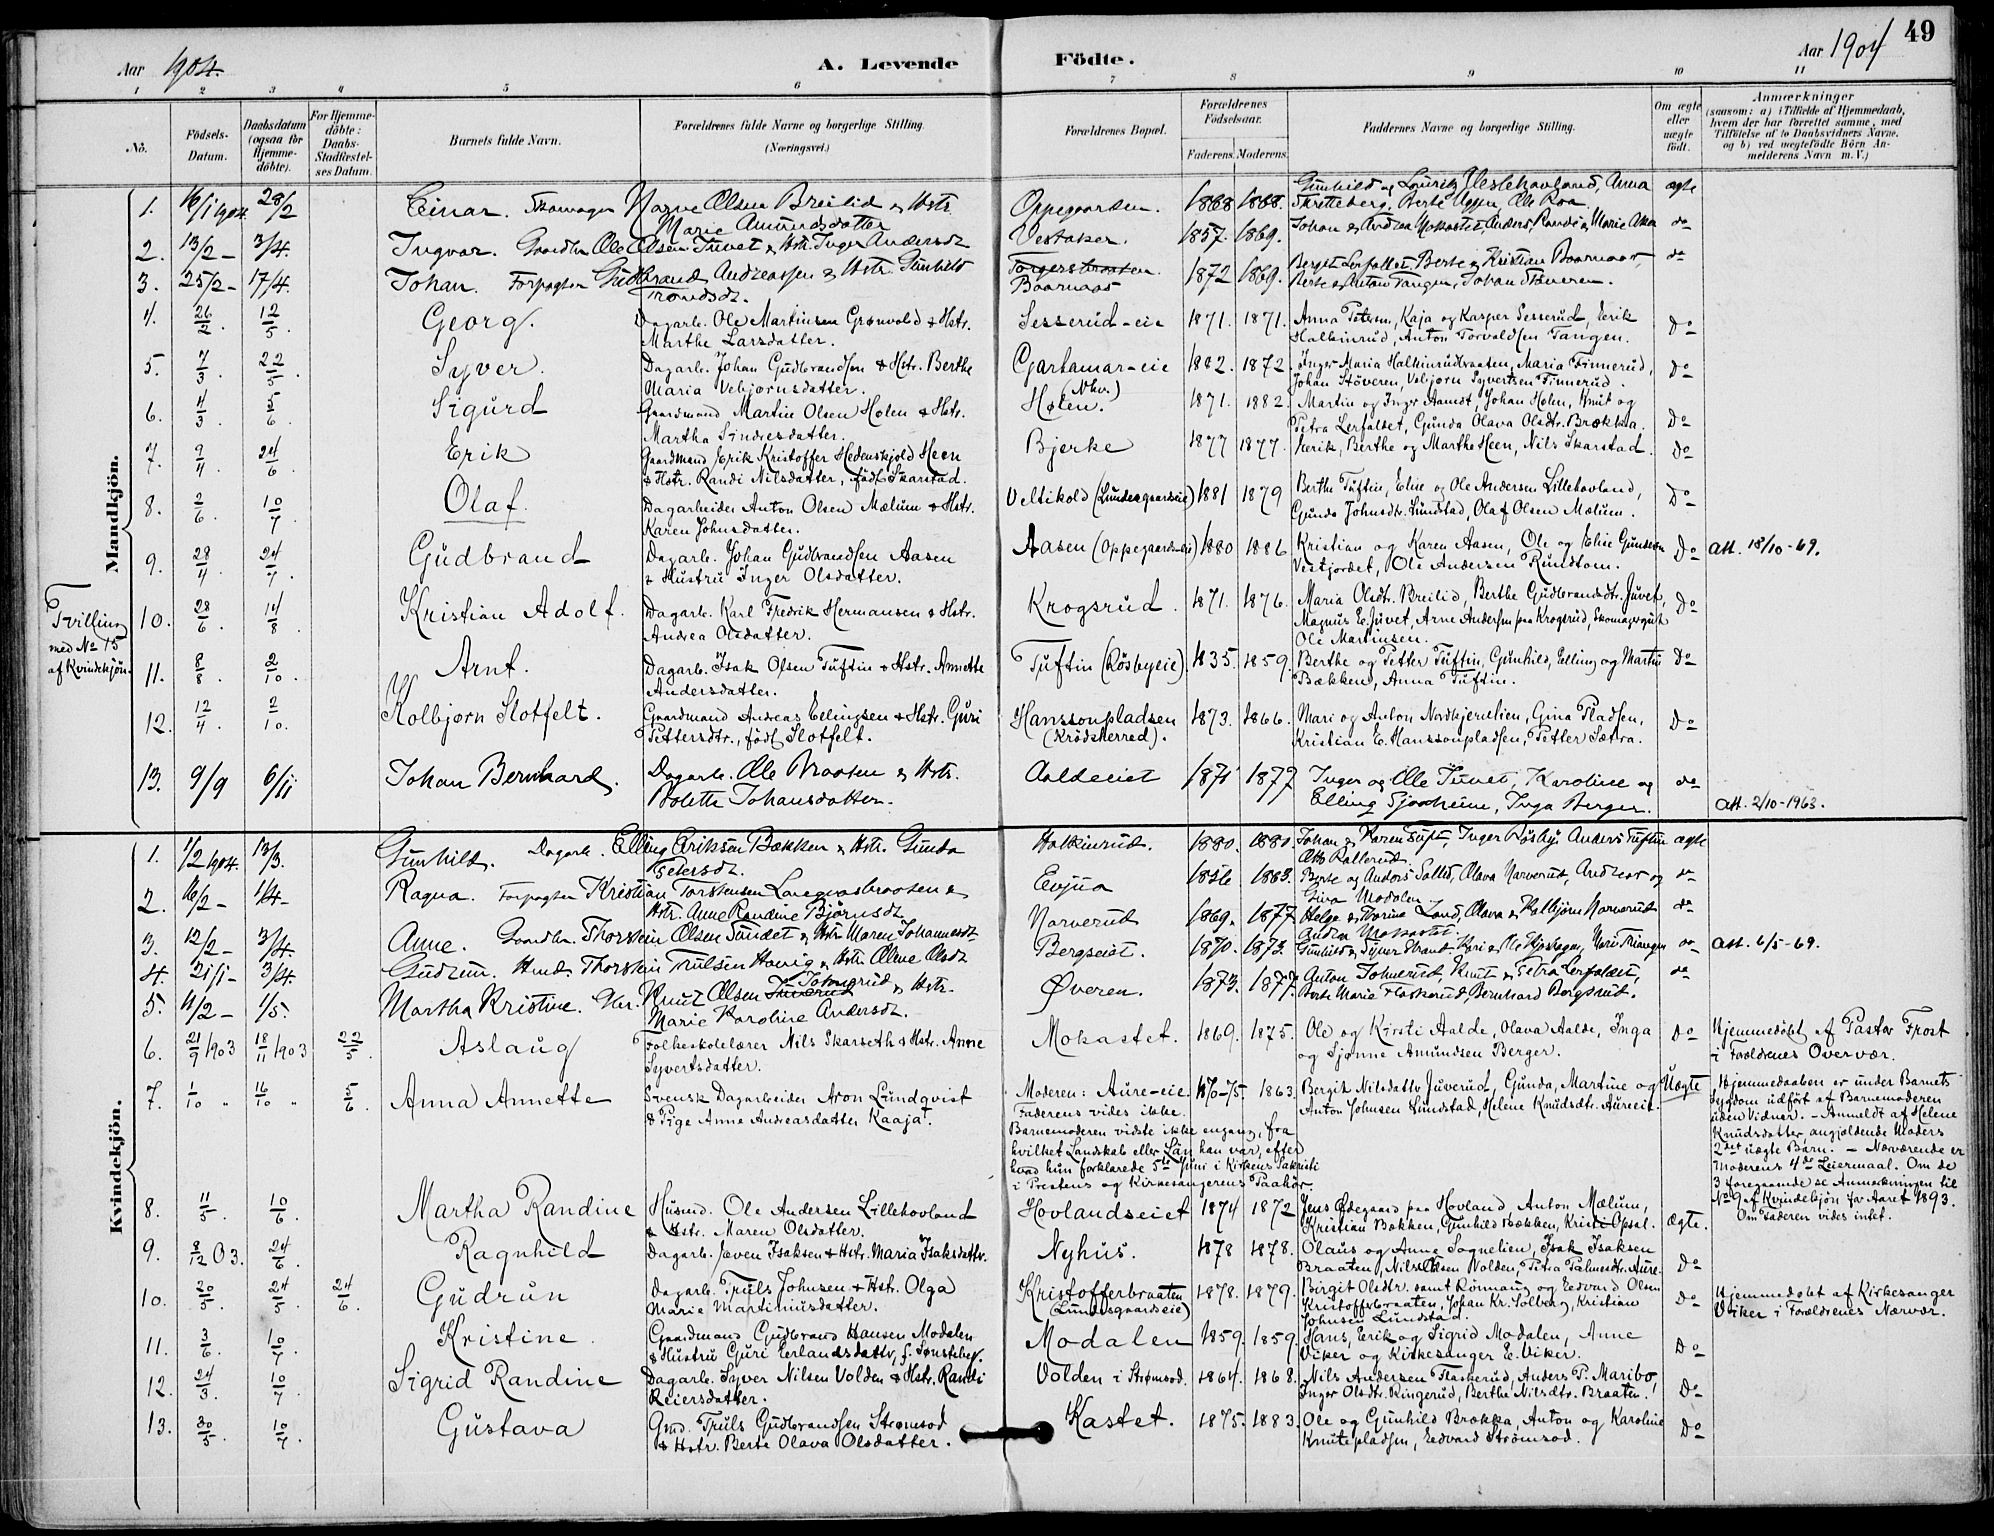 49
Aar 1904. A. Levende Födte. Aar 1904
1 2 3 4 5 6 7 8 9 10 11
Nô. Födsels-Datum. Daabsdatum (ogsaa for Hjemme-döbte). For Hjemme-döbte: Daabs-Stadfæstel-ses Datum. Barnets fulde Navn. Forældrenes fulde Navne og borgerlige Stilling. (Næringsvei.) Forældrenes Bopæl. Forældrenes Födselsaar. Faderens. Moderens. Faddernes Navne og borgerlige Stilling. Om ægte eller uægte födt. Anmærkninger (saasom: a) i Tilfælde af Hjemmedaab, hvem der har forrettet samme, med Tilföielse af to Daabsvidners Navne, og b) ved uægtefödte Börn An-melderens Navn m. V.)
Mandkjön.
1. 16/1 1904 28/2 Einar. Skomager Olsen Breilid & Hstr. Marie Amundsdatter Oppegaarden. 1868 1868. Gunhild og Hestehovland, Anna Skretteberg, Berte Ole Roa ægte
2. 13/2 - 3/4. Ingvar. Gaardbr. Ole Olsen Juvet & Hstr. Inger Andersdt Vestaker. 1857. 1869. Johan & Andrea Mokastet, Anders, Randi & Marie Aker do
3. 25/2 - 17/4. Johan. Forpagter Gudbrand Andreassen & Hstr. Gunhild Trondsdt. Torgersbraaten. Baarnaas 1872 1869. Berget Lerfallet, Berte & Kristian Baarnaas, Berte & Anton Tangen, Johan Støveren. do
4. 26/2. 12/5. Georg. Dagarb. Ole Martinsen Grønvold & Hstr. Marthe Larsdatter. Sesserud-eie 1871. 1871. Anna Petersen, Kaja og Kasper Sesserud, Eerik Halkinrud, Anton Torvaldsen Tangen. Do
5. 7/3. 22/5. Syver. Dagarb. Johan Gudbrandsen & Hstr. Berthe Maria Vebjørnsdatter. Garhamar-eie (Nhv.) 1882. 1872. Inger Maria Halkinrudbraaten, Maria Finnerud, Johan Støveren, Vebjørn Syvertsen Finnerud. Do
6. 4/3. 5/6. Sigurd Gaardmand Martin Olsen Holen & Hstr. Martha Sindresdatter. Hølen. 1871. 1882. Martin og Inger Aamot, Johan Holen, Knut og Petra Lerfaldet, Gunda Olava Olsdtr. Brækka. Do
7. 9/4. 24/6. Erik Gaardmand Erik Kristoffer Hedenskjold Heen & Hstr. Randi Nilsdatter, födt Skarstad. Bjerke 1877 1877. Eerik, Berthe og Marthe Heen, Nils Skarstad. Do
8. 2/6. 10/7. Olaf. Dagarbeider Anton Olsen Mælum & Hstr. Karen Johnsdatter. Veltikold (Lundesgaardseie) 1881 1879 Berthe Tuftin, Elise og Ole Andersen Lillehovland, Gunda Johnsdtr. Lundstad, Olaf Olsen Mælum. Do
9. 28/4. 24/7. Gudbrand Dagarb. Johan Gudbrandsen Aasen & Hustru Inger Olsdatter. Aasen (Oppegaardseie) 1880 1886 Kristian og Karen Aasen, Ole og Elise Gundersen Vestjordet, Ole Andersen Rundtom. Do Att. 18/10-69.
Tvilling med No 15 af Kvindekjön.
10. 28/6. 14/8. Kristian Adolf. Dagarb. Karl Fredrik Hermansen & Hstr. Andrea Olsdatter. Krogsrud. 1871. 1876. Maria Olsdtr. Breilid, Berthe Gudbrandsdtr. Juvet, Magnus E. Juvet, Arne Andersen paa Krogsrud, Skomagergut Ole Martinsen. Do
11. 8/8. 2/10. Arnt. Dagarb. Isak Olsen Tuftin & Hstr. Annette Andersdatter. Tuftin (Røsbyeie) 1835. 1859. Berthe og Petter Tuftin, Gunhild, Elling og Martin Bækken, Anna Tuftin. Do
12. 12/4. 2/10. Kolbjørn Slotfelt. Gaardmand Andreas Ellingsen & Hstr. Guri Pettersdtr., födt Slotfelt. Hanssonpladsen (Krödsherred). 1873. 1866. Mari og Anton Nordhjemlien, Gina Pladsen, Kristian E. Hanssonpladsen, Petter Sætra. Do
13. 9/9 6/11 Johan Bernhard. Dagarb. Ole Braaten & Hstr. Bolette Johansdatter. Aaldeeiet 1871 1877 Inger og Ole Juvet, Karoline og Elling Gjørheim, Inga Berger. do Att. 2/10-1963.
Kvindekjön.
1. 1/2 1904. 13/3. Gunhild. Dagarb. Elling Eriksen Bækken & Hstr. Gunda Petersdt. Halkinrud. 1880. 1880. Johan & Karen Tuft, Inger Røsby, Anders Tuftin ægte
2. 16/2 - 1/4 - Ragna. Forpagter Kristian Torstensen Langaasbraaten & Hstr. Anne Randine Bjørnsdt Evjua 1856 1863. Berte og Anders Solli, Olava Narverud, Andreas og Gina Modalen do
3. 12/2 - 3/4. Anne. Gaardbr. Thorstein Olsen Sandet & Hstr. Maren Johannesdt Narverud 1869. 1877 Helge & Thorine Land, Olava & Kolbjørn Narverud Andrea Mokastet. do
4. 21/1 - 3/4. Gudrun. Husmd. Thorstein Trulsen Hovig & Hstr. Oline Olsdt Bergseiet. 1870. 1873. Gunhild & Syver Strand, Kari & Ole do Att. 6/5-69.
5. 11/2 - 1/5. Martha Kristine. Gbr. Knut Olsen Juverud Johnerud & Hstr. Marie Karoline Andersdt. Øveren. 1873. 1877. Anton Johnerud, Knut & Petra Lerfaldet, Berte Marie Flaskerud, Bernhard Bergsrud. do
6. 21/9 1903 18/11 1903 22/5. Aslaug Folkeskolelærer Nils Skarseth & Hstr. Anne Syvertsdatter. Mokastet. 1869. 1875. Ole og Kirsti Aalde, Olava Aalde, Inga og Sjønne Amundsen Berger. Do Hjemmedöbt af Pastor Frost i Forældrenes Overvær.
7. 1/10 " 16/10 " 5/6. Anna Annette Svensk Dagarbeider Aron Lundqvist & Pige Anne Andreasdatter Kaaja. Moderen: Aure-eie. Faderens vides ikke. Barnemoderen vidste ikke engang, fra hvilket Landskab eller Län han var, efter hvad hun forklarede 5te Juni i Kirkens Sakristi i Prestens og Kirkesangerens Paahör. 1870-75. 1863. Bergit Nilsdattr Juverud, Gunda, Martine og Anton Johnsen Lundstad, Helene Knudsdtr. Aureeie. Uægte Hjemmedaaben er under Barnets Sygdom udfört af Barnemoderen uden Vidner. - Anmeldt af Helene Knudsdatter, angjældende Moders 2det uægte Barn. - Nærværende er Moderens 4de Leiermaal. Om de 3 foregaaende se Anmerkningen til No 9 af Kvindekjön for Aaret 1893. Om Faderen vides intet.
8. 11/5. 10/6. Martha Randine Husmd. Ole Andersen Lillehovland & Hstr. Maren Olsdatter. Hovlandseiet 1874 1872 Jens Ødegaard paa Hovland, Anton Mælum, Kristian Bakken, Gunhild Bækken, Kristi Opsal. ægte.
9. 8/12 03. 24/6. Ragnhild Dagarb. Jeven Isaksen & Hstr. Maria Isaksdattr. Nyhus. 1878 1878. Olaus og Anne Sognelien, Isak Isaksen Braaten, Nils Olsen Volden, Petra Palmesdtr. Aure. Do
10. 20/5. 24/5. 24/6. Gudrun Dagarb. Truls Johnsen & Hstr. Olga Marie Martiniusdatter. Kristofferbraaten (Lundesgaardseie) 1878. 1879. Birgit Olsdtr. samt Rönnaug og Eedvard Olsen Kristofferbraaten, Johan Kr. Solberg, Kristian Johnsen Lundstad. Do Hjemmedøbt af Kirkesanger Viker i Forældrenes Nærvær.
11. 3/6. 10/7. Kristine Gaardmand Gudbrand Hansen Modalen & Hustru Guri Eerlandsdattr, f. Tønsteberg. Modalen 1859. 1859. Hans, Erik og Sigrid Modalen, Anne Viker og Kirkesanger E. Viker. Do
12. 24/3. 10/7. Sigrid Randine Dagarb. Syver Nilsen Volden & Hstr. Randi Reiersdatter. Volden i Strømsod. 1864. 1868. Nils Andersen Flaskerud, Anders P. Maribo, Inger Olsdtr. Ringerud, Berthe Nilsdtr. Braaten. Do
13. 30/5. 10/7. Gustava Gmd. Truls Gudbrandsen Strømsod & Hstr. Berte Olava Olsdatter. Kastet. 1875. 1883. Ole og Gunhild Brækka, Anton og Karoline Knutepladsen, Eedvard Strömsod. Do